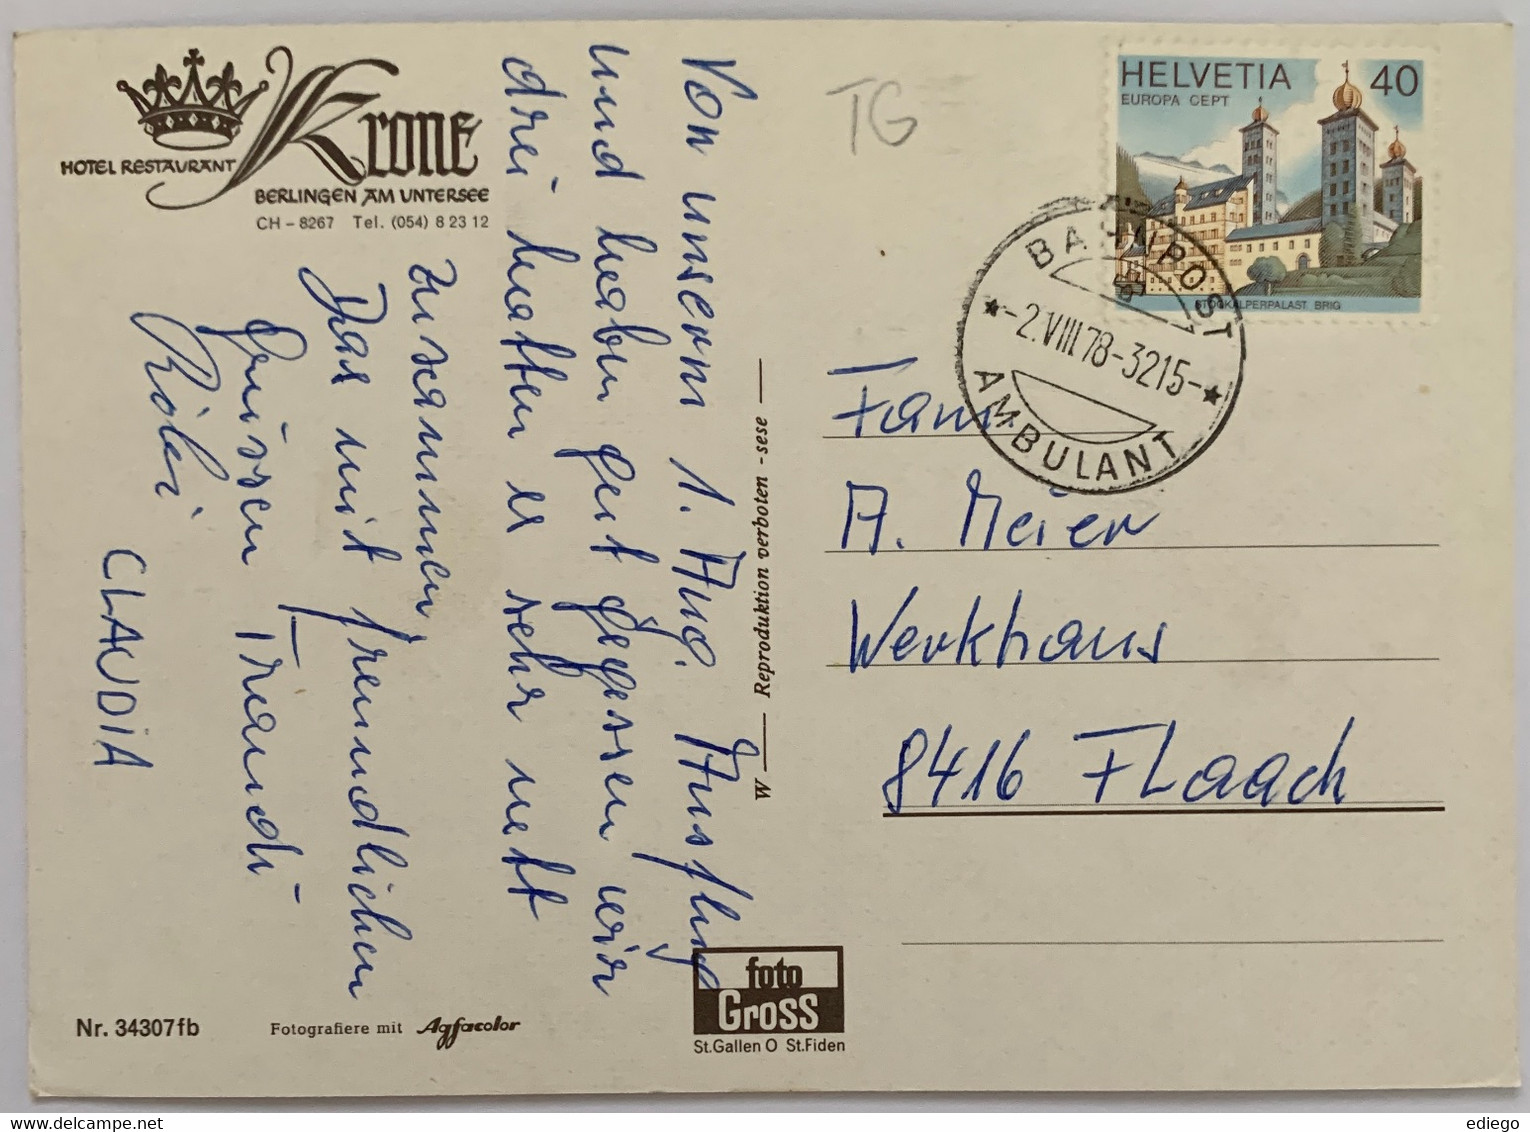 Krone
HOTEL RESTAURANT
BERLINGEN AM UNTERSEE
CH – 8267 Tel. (054) 8 23 12
Von unserm 1. Aug. Ausflug
und haben gut gegessen wir
drei hatten es sehr nett
zusammen.
Das mit freundlichen
Grüssen Traudi
Röbi
CLAUDIA
Nr. 34307fb
Fotografiere mit Agfacolor
W — Reproduktion verboten - sese —
foto
Gross
St.Gallen O St.Fiden
TG
HELVETIA 40
EUROPA CEPT
STOCKALPERPALAST BRIG
BAHNPOST
-2.VIII.78-3215-
AMBULANT
Fam.
A. Meier
Werkhaus
8416 Flaach
ediego